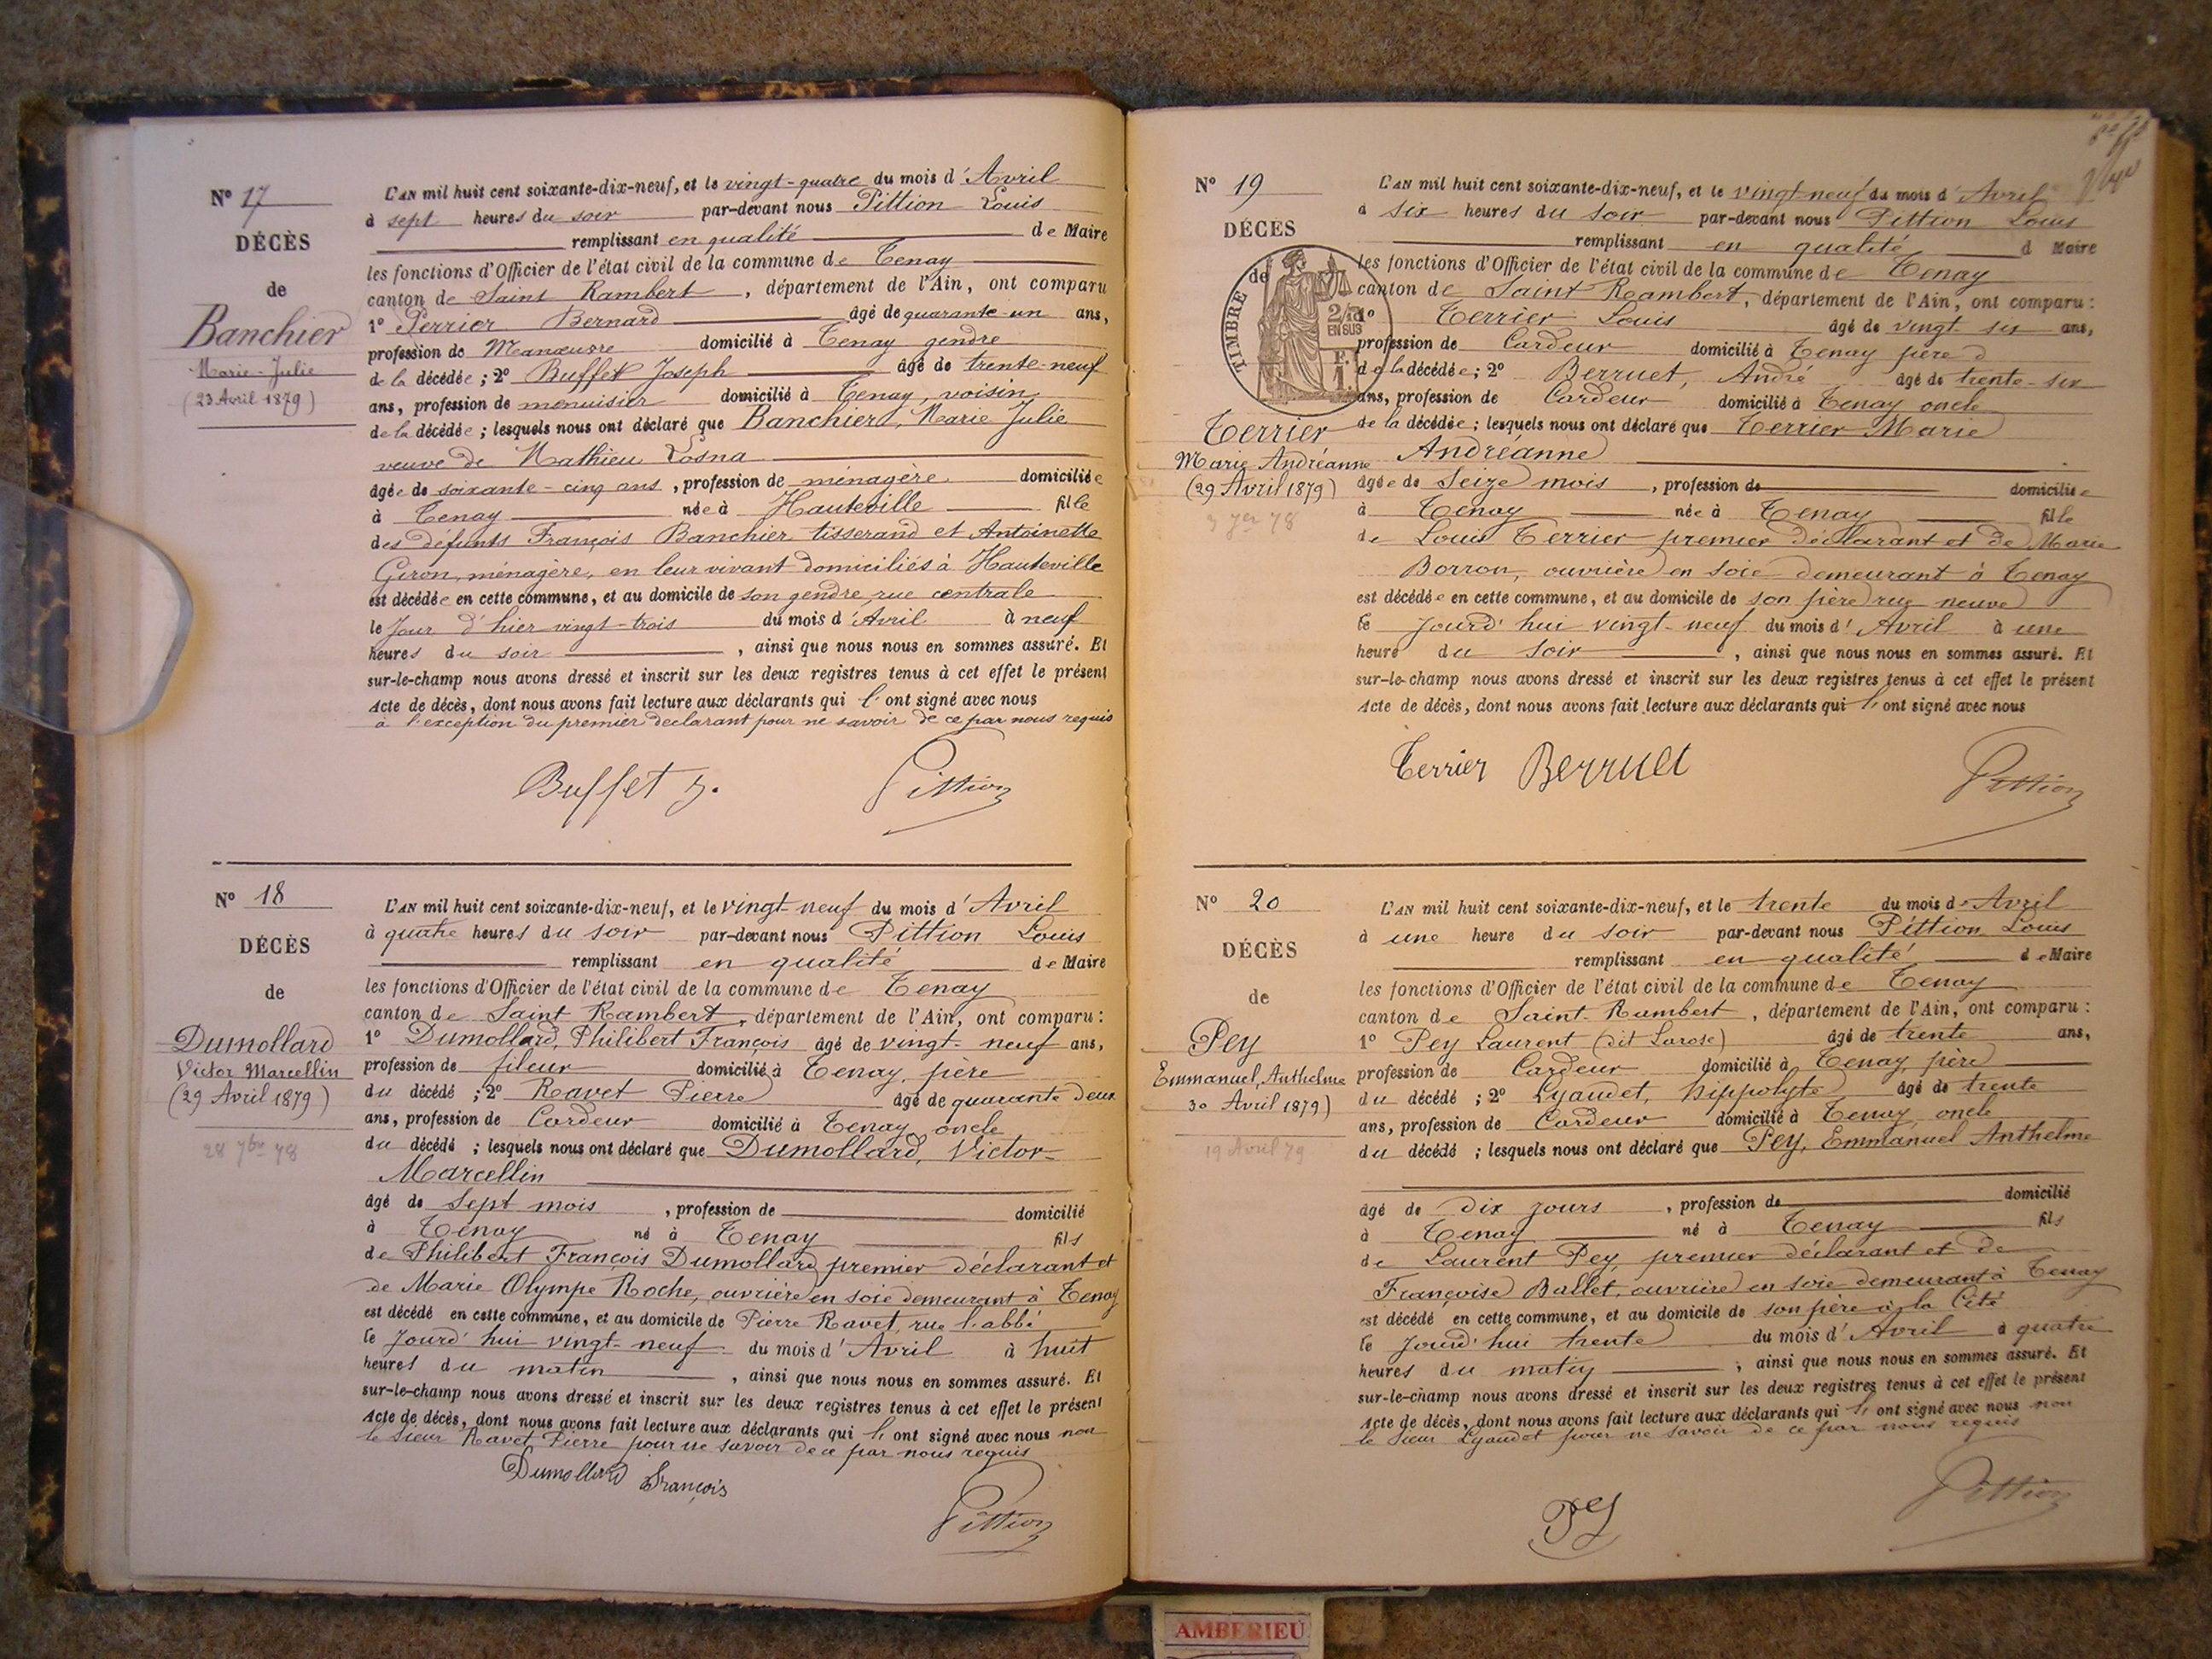 Nº 17
DÉCÈS
de
Banchier
Marie-Julie
(23 Avril 1879)
L'AN mil huit cent soixante-dix-neuf, et le vingt-quatre du mois d'Avril
à sept heures du soir par-devant nous Pittion Louis
remplissant en qualité de Maire
les fonctions d'Officier de l'état civil de la commune de Tenay
canton de Saint Rambert, département de l'Ain, ont comparu
1º Perrier Bernard âgé de quarante-un ans,
profession de Manœuvre domicilié à Tenay gendre
de la décédée ; 2º Buffet Joseph âgé de trente-neuf
ans, profession de menuisier domicilié à Tenay, voisin
de la décédée ; lesquels nous ont déclaré que Banchier, Marie Julie
veuve de Mathieu Losna
âgée de soixante-cinq ans, profession de ménagère domiciliée
à Tenay née à Hauteville fille
des défunts François Banchier tisserand et Antoinette
Giron, ménagère, en leur vivant domiciliés à Hauteville
est décédée en cette commune, et au domicile de son gendre rue centrale
le Jour d'hier vingt-trois du mois d'Avril à neuf
heures du soir, ainsi que nous nous en sommes assuré. Et
sur-le-champ nous avons dressé et inscrit sur les deux registres tenus à cet effet le présent
Acte de décès, dont nous avons fait lecture aux déclarants qui l'ont signé avec nous
à l'exception du premier déclarant pour ne savoir de ce par nous requis
Buffet J. Pittion
Nº 18
DÉCÈS
de
Dumollard
Victor Marcellin
(29 Avril 1879)
28 7bre 78
L'AN mil huit cent soixante-dix-neuf, et le vingt-neuf du mois d'Avril
à quatre heures du soir par-devant nous Pittion Louis
remplissant en qualité de Maire
les fonctions d'Officier de l'état civil de la commune de Tenay
canton de Saint Rambert, département de l'Ain, ont comparu :
1º Dumollard, Philibert François âgé de vingt-neuf ans,
profession de fileur domicilié à Tenay, père
du décédé ; 2º Ravet Pierre âgé de quarante deux
ans, profession de Cardeur domicilié à Tenay oncle
du décédé ; lesquels nous ont déclaré que Dumollard, Victor-
Marcellin
âgé de Sept mois, profession de domicilié
à Tenay né à Tenay fils
de Philibert François Dumollard premier déclarant et
de Marie Olympe Roche, ouvrière en soie demeurant à Tenay
est décédé en cette commune, et au domicile de Pierre Ravet, rue l'abbé
le Jourd'hui vingt-neuf du mois d'Avril à huit
heures du matin, ainsi que nous nous en sommes assuré. Et
sur-le-champ nous avons dressé et inscrit sur les deux registres tenus à cet effet le présent
Acte de décès, dont nous avons fait lecture aux déclarants qui l'ont signé avec nous non
le sieur Ravet Pierre pour ne savoir de ce par nous requis
Dumollard François
Pittion
Nº 19
DÉCÈS
de
TIMBRE
2/10
EN SUS
F. 1
Terrier
Marie Andréanne
(29 Avril 1879)
L'AN mil huit cent soixante-dix-neuf, et le vingt-neuf du mois d'Avril
à six heures du soir par-devant nous Pittion Louis
remplissant en qualité d Maire
les fonctions d'Officier de l'état civil de la commune de Tenay
canton de Saint Rambert, département de l'Ain, ont comparu :
1º Terrier Louis âgé de vingt six ans,
profession de Cardeur domicilié à Tenay père d
de la décédée ; 2º Berruet, André âgé de trente-six
ans, profession de Cardeur domicilié à Tenay oncle
de la décédée ; lesquels nous ont déclaré que Terrier Marie
Andréanne
âgée de Seize mois, profession de domiciliée
à Tenay née à Tenay fille
de Louis Terrier premier déclarant et de Marie
Borron, ouvrière en soie demeurant à Tenay
est décédée en cette commune, et au domicile de son père rue neuve
le Jourd'hui vingt-neuf du mois d'Avril à une
heure du soir, ainsi que nous nous en sommes assuré. Et
sur-le-champ nous avons dressé et inscrit sur les deux registres tenus à cet effet le présent
Acte de décès, dont nous avons fait lecture aux déclarants qui l'ont signé avec nous
Terrier Berruet Pittion
Nº 20
DÉCÈS
de
Pey
Emmanuel, Anthelme
30 Avril 1879)
19 Avril 79
L'AN mil huit cent soixante-dix-neuf, et le trente du mois d'Avril
à une heure du soir par-devant nous Pittion Louis
remplissant en qualité de Maire
les fonctions d'Officier de l'état civil de la commune de Tenay
canton de Saint-Rambert, département de l'Ain, ont comparu :
1º Pey Laurent (dit Larose) âgé de trente ans,
profession de Cardeur domicilié à Tenay, père
du décédé ; 2º Lyaudet, hippolyte âgé de trente
ans, profession de Cardeur domicilié à Tenay, oncle
du décédé ; lesquels nous ont déclaré que Pey, Emmanuel Anthelme
âgé de Dix jours, profession de domicilié
à Tenay né à Tenay fils
de Laurent Pey, premier déclarant et de
Françoise Ballet, ouvrière en soie demeurant à Tenay
est décédé en cette commune, et au domicile de son père à la Cité
le Jourd'hui trente du mois d'Avril à quatre
heures du matin, ainsi que nous nous en sommes assuré. Et
sur-le-champ nous avons dressé et inscrit sur les deux registres tenus à cet effet le présent
Acte de décès, dont nous avons fait lecture aux déclarants qui l'ont signé avec nous non
le sieur Lyaudet pour ne savoir de ce par nous requis
Pittion
AMBERIEU